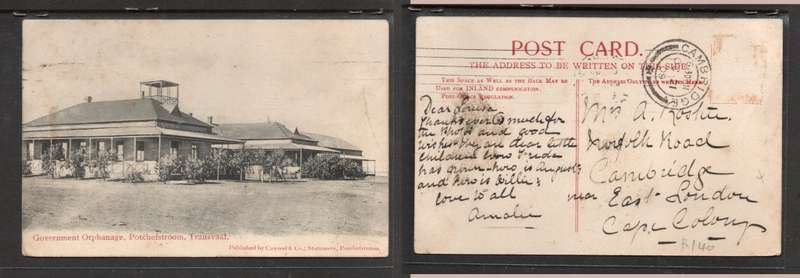 Government Orphanage, Potchefstroom, Transvaal.
Published by & Co., Stationers, Potchefstroom.
POST CARD.
THE ADDRESS TO BE WRITTEN ON THIS SIDE.
THIS SPACE AS WELL AS THE BACK MAY BE
USED FOR INLAND COMMUNICATION.
POST OFFICE REGULATION.
THE ADDRESS ONLY TO BE WRITTEN HERE.
CAMBRIDGE
Dear Louisa
Thanks ever so much for
the Photo and good
wishes they are dear little
children how
has grown who is August
and who is Willie;
love to all
Amalie
Mrs A.
Norfolk Road
Cambridge
near East London
Cape Colony
R/40